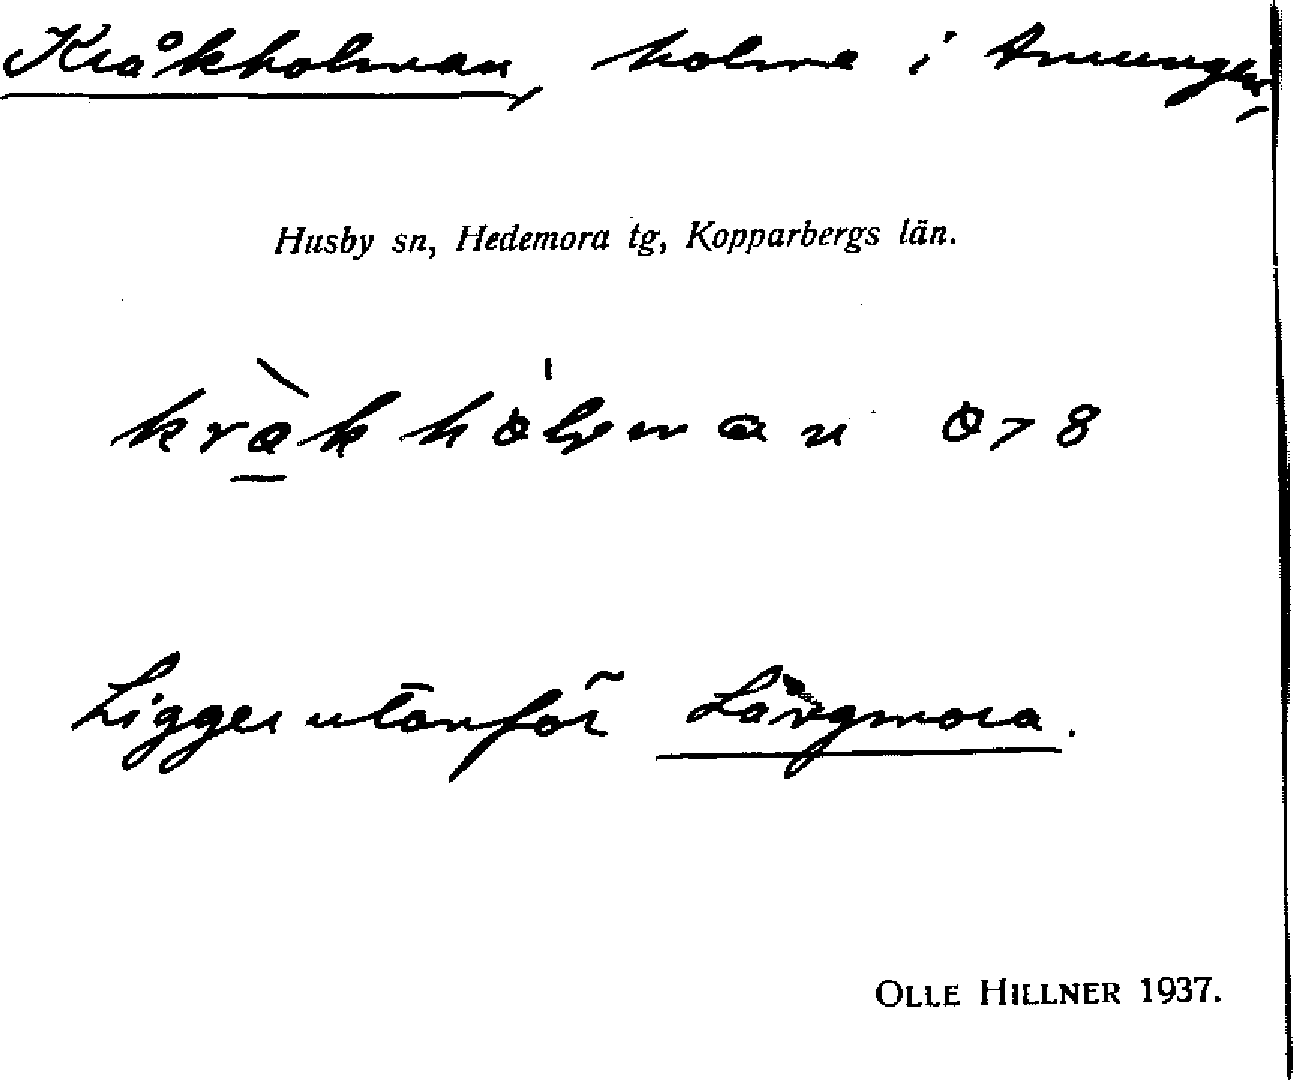 Kråkholman, holme i Amungen
Husby sn, Hedemora tg, Kopparbergs län.
Ligger utanför Långmora.
OLLE HILLNER 1937.